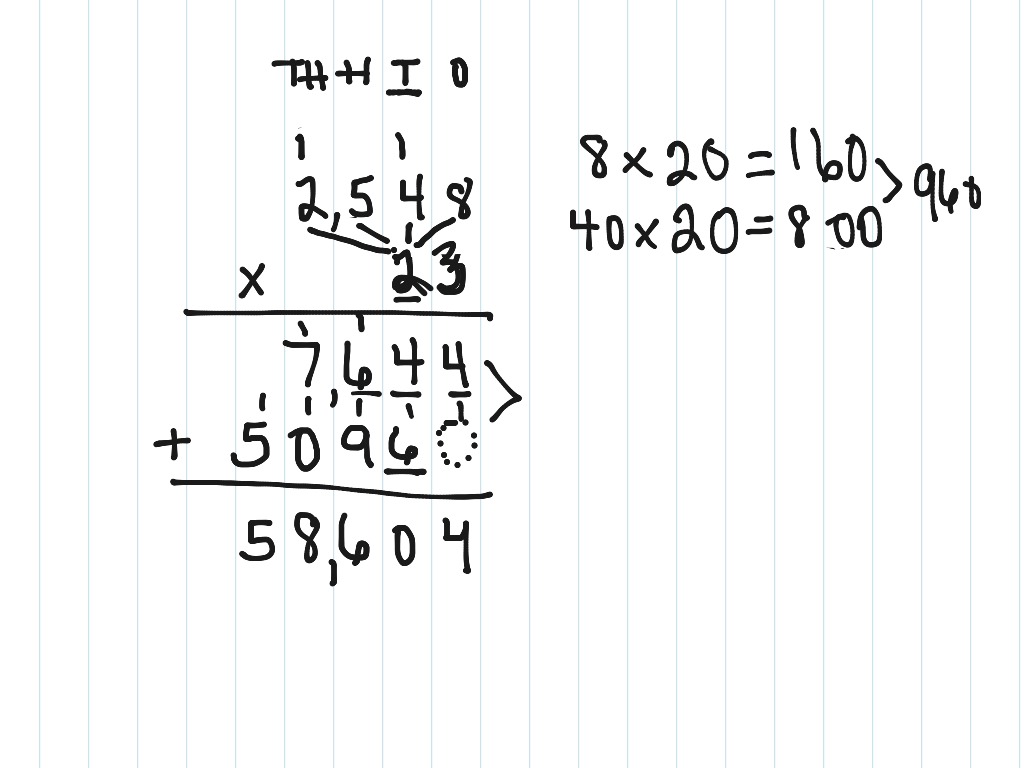 TH H T O
1 1
2,548
x 23
1 1
7,644
+ 50960
58,604
8 x 20 = 160
40 x 20 = 800 > 960